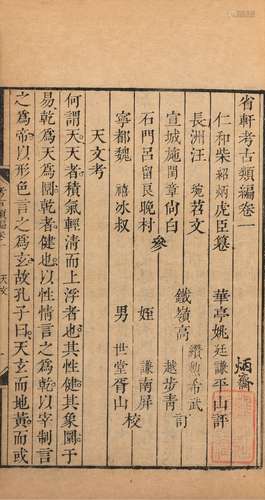 省軒考古類編卷一
仁和柴紹炳虎臣纂
華亭姚廷謙平山評
長洲汪琬苕文
宣城施閏章尚白
石門呂留良晚村
寧都魏禧冰叔
參
纘勲希武
鐵嶺高
越步青
訂
姪謙南屏
男世堂胥山
校
天文考
何謂天天者積氣輕清而上浮者也其性健其象圜于
易乾為天為圜乾者健也以性情言之為乾以宰制言
之為帝以形色言之為玄故孔子曰天玄而地黃而或
考古類編
天文
一
炳齋